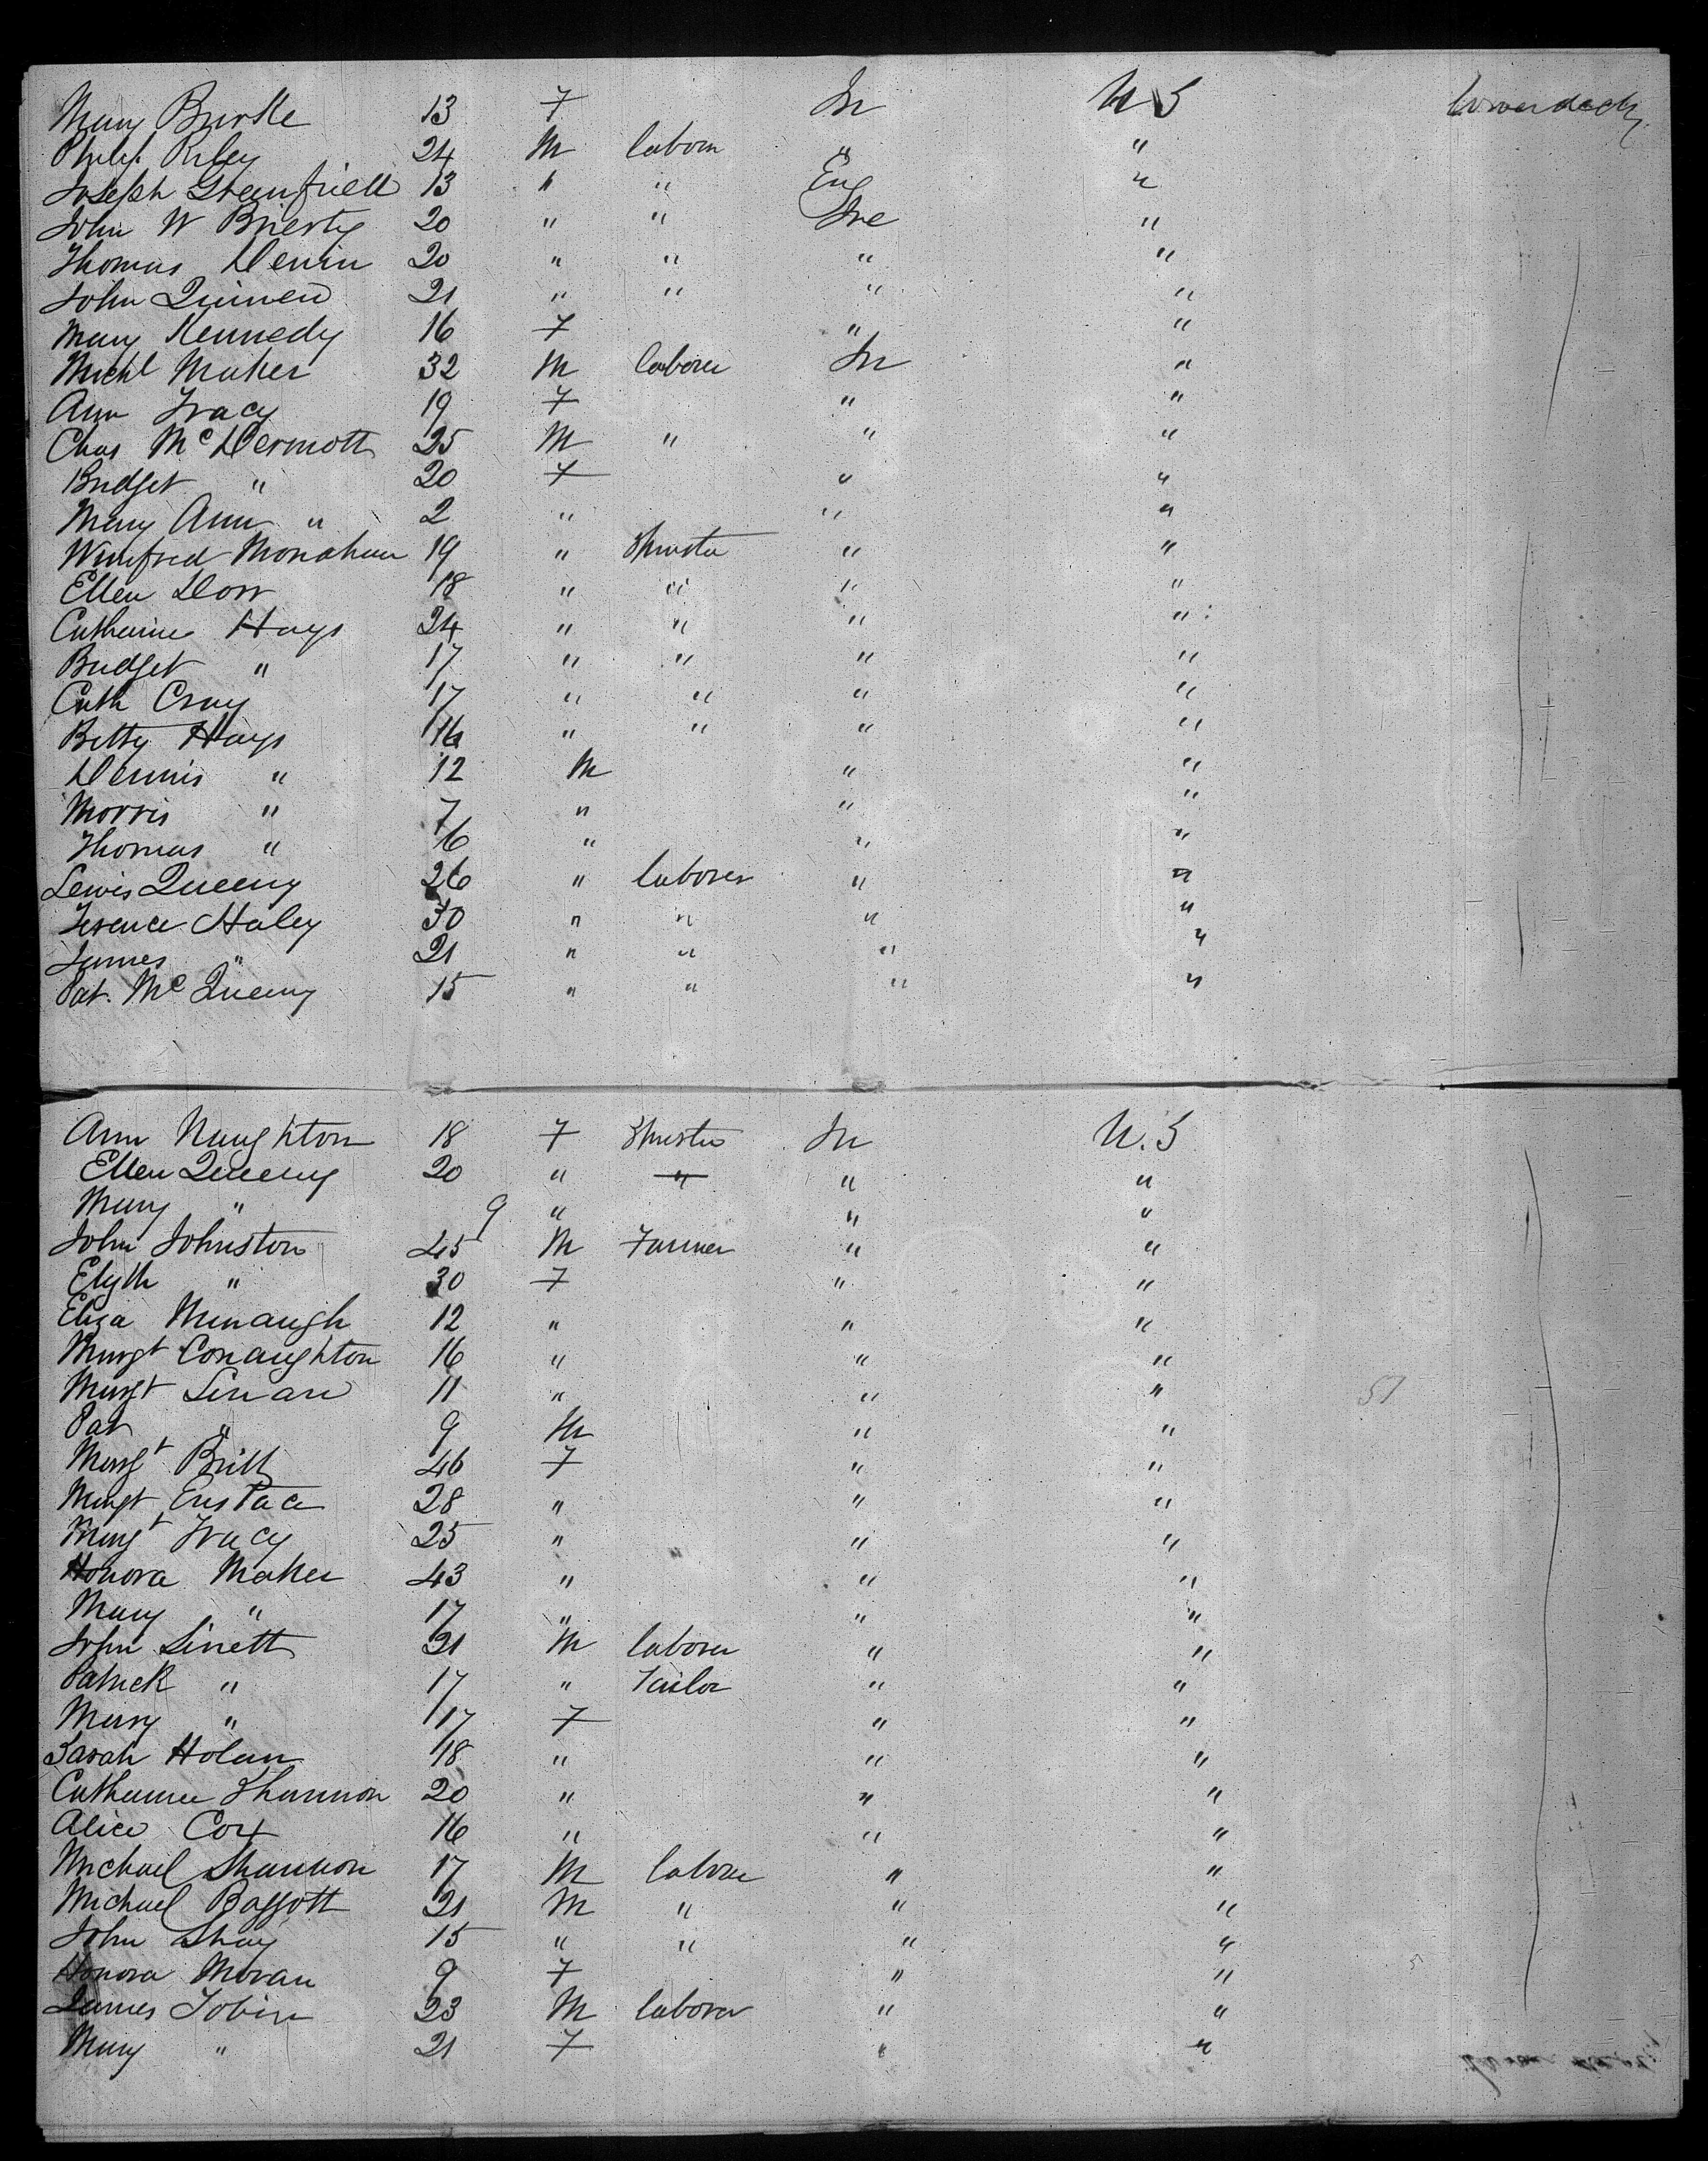 Mary Burke 13 F Ir U S Lower deck
Philip Riley 24 M laborer " "
Joseph Greenfield 13 " " Eng "
John W Brierty 20 " " Ire "
Thomas Devin 20 " " " "
John 21 " " " "
Mary Kennedy 16 F " "
Michl Maher 32 M laborer Ir "
Ann Tracy 19 F " "
Chas McDermott 25 M " " "
Bridget " 20 F " "
Mary Ann " 2 " " "
Winifred Monahan 19 " Spinster " "
Ellen Dorr 18 " " " "
Catherine Hays 24 " " " "
Bridget " 17 " " " "
Cath Cray 17 " " " "
Betty Hays 16 " " " "
Dennis " 12 M " "
Morris " 7 " " "
Thomas " 6 " " "
Lewis Queeny 26 " laborer " "
Terence Haley 30 " " " "
James " 21 " " " "
Pat. Mc Queeny 15 " " " "
Ann Naughton 18 F Spinster Ir U.S
Ellen Queeny 20 " " " "
Mary " 9 " " "
John Johnston 45 M Farmer " "
" 30 F " "
Eliza Menaugh 12 " " "
Margt Conaughton 16 " " "
Margt Linan 11 " " "
Pat " 9 M " "
Margt Britt 46 F " "
Margt Eustace 28 " " "
Margt Tracy 25 " " "
Honora Maher 43 " " "
Mary " 17 " " "
John Linett 21 M laborer " "
Patrick " 17 " Tailor " "
Mary " 17 F " "
Sarah Holan 18 " " "
Catherine Shannon 20 " " "
Alice Cox 16 " " "
Michael Shannon 17 M laborer " "
Michael Baggott 21 M " " "
John Shay 15 " " " "
Honora Moran 9 F " "
James Tobin 23 M laborer " "
Mary " 21 F " "